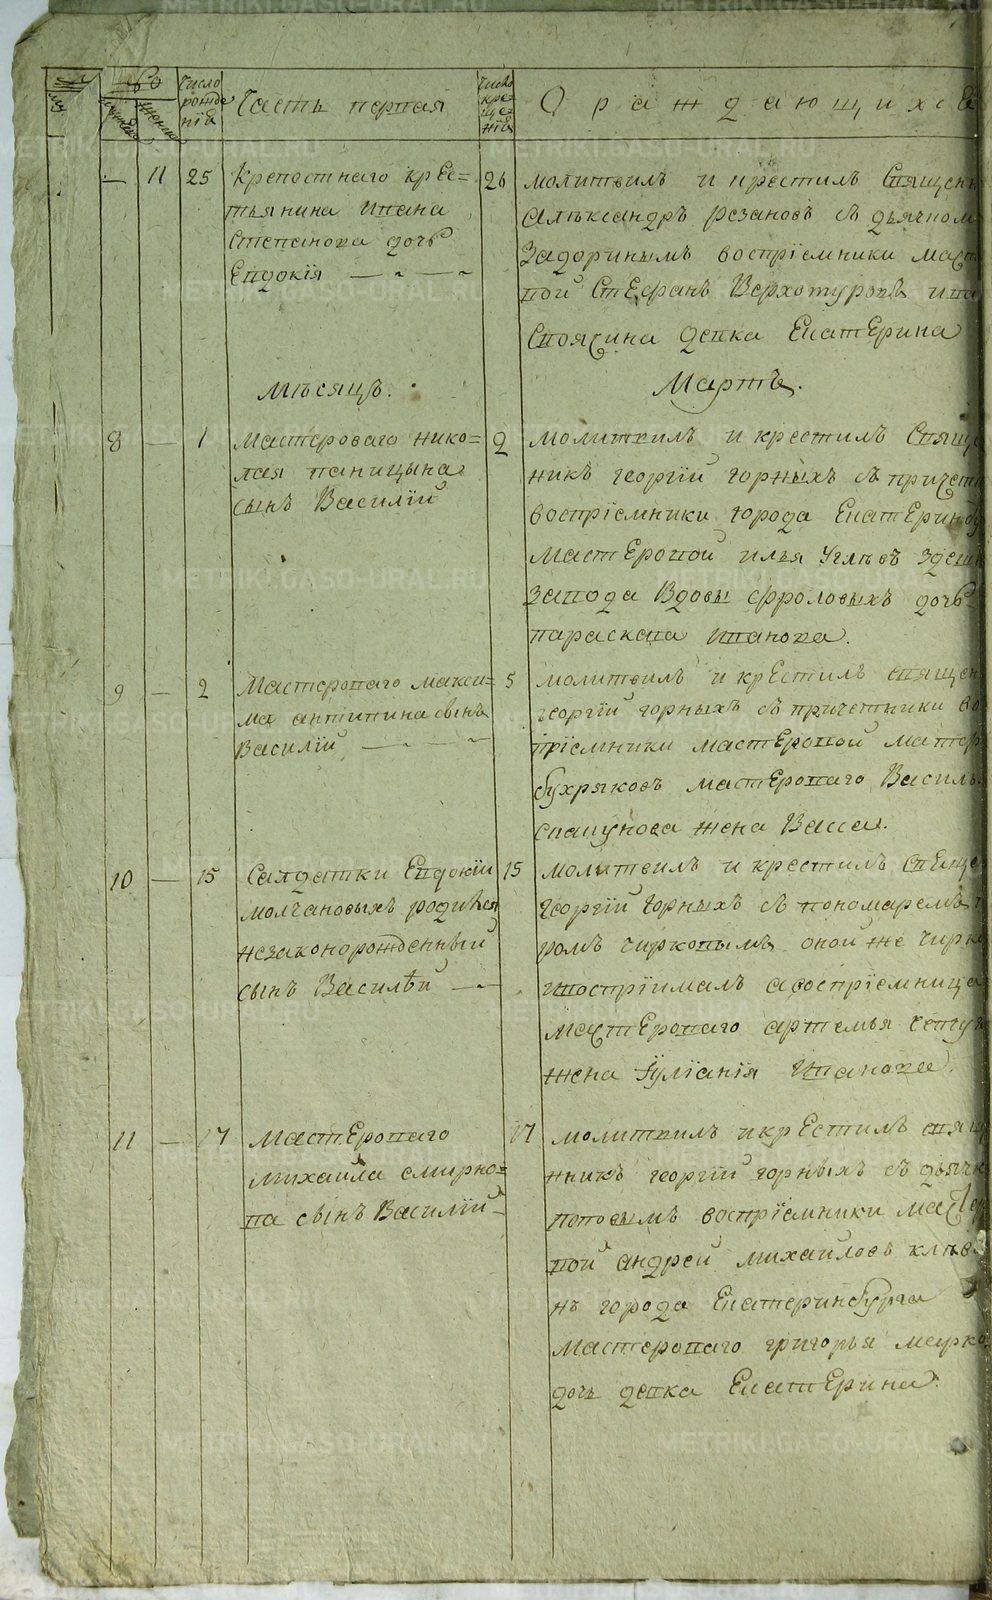 Число рожде нїѧ
Часть первая
Число кре ще нїѧ
О раждающихсѧ
— 11 25 Крепостнаго крес=
тьянина ивана
Степанова дочь
Евдокїя
26 молитвилъ и крестилъ Священ
Александръ Резановъ съ дьячком
Задоринымъ воспрїемники маст
вой Стефанъ Верхотуровъ и
девка Екатерина
Мѣсяцъ. Мартъ.
8 — 1 Мастероваго нико=
лая паницына
сынъ Василїй
2 молитвилъ и крестилъ Свяще
никъ георгїй горныхъ съ причетн
воспрїемники города Екатеринбу
мастеровой илья Углевъ здеш
завода вдовы фроловыхъ дочь
параскева иванова.
9 — 2 Мастероваго макси=
ма антипина сынъ
Василїй
5 молитвилъ и крестилъ священ
георгїй горныхъ съ причетники во
прїемники мастеровой матфе
бухряковъ мастероваго Василь
жена Васса.
10 — 15 Салдатки Евдокїи
молчановыхъ родился
незаконорожденный
сынъ Василѣй
15 молитвилъ и крестилъ свѧще
георгїй горныхъ съ пономаремъ
ромъ чирковымъ оной же чирко
ивоспрїималъ авоспрїемница
мастероваго артемья
жена Їулїанїя Иванова.
11 — 17 Мастероваго
михаила смирно=
ва сынъ Василїй
17 молитвилъ и крестилъ свящ
нникъ георгїй горныхъ съ дьячк
поповымъ воспрїемники мастер
вой андрей михайловъ
нъ города Екатеринбурга
мастероваго григорья марко
дочь девка Екатерина.
METRIKI.GASO-URAL.RU